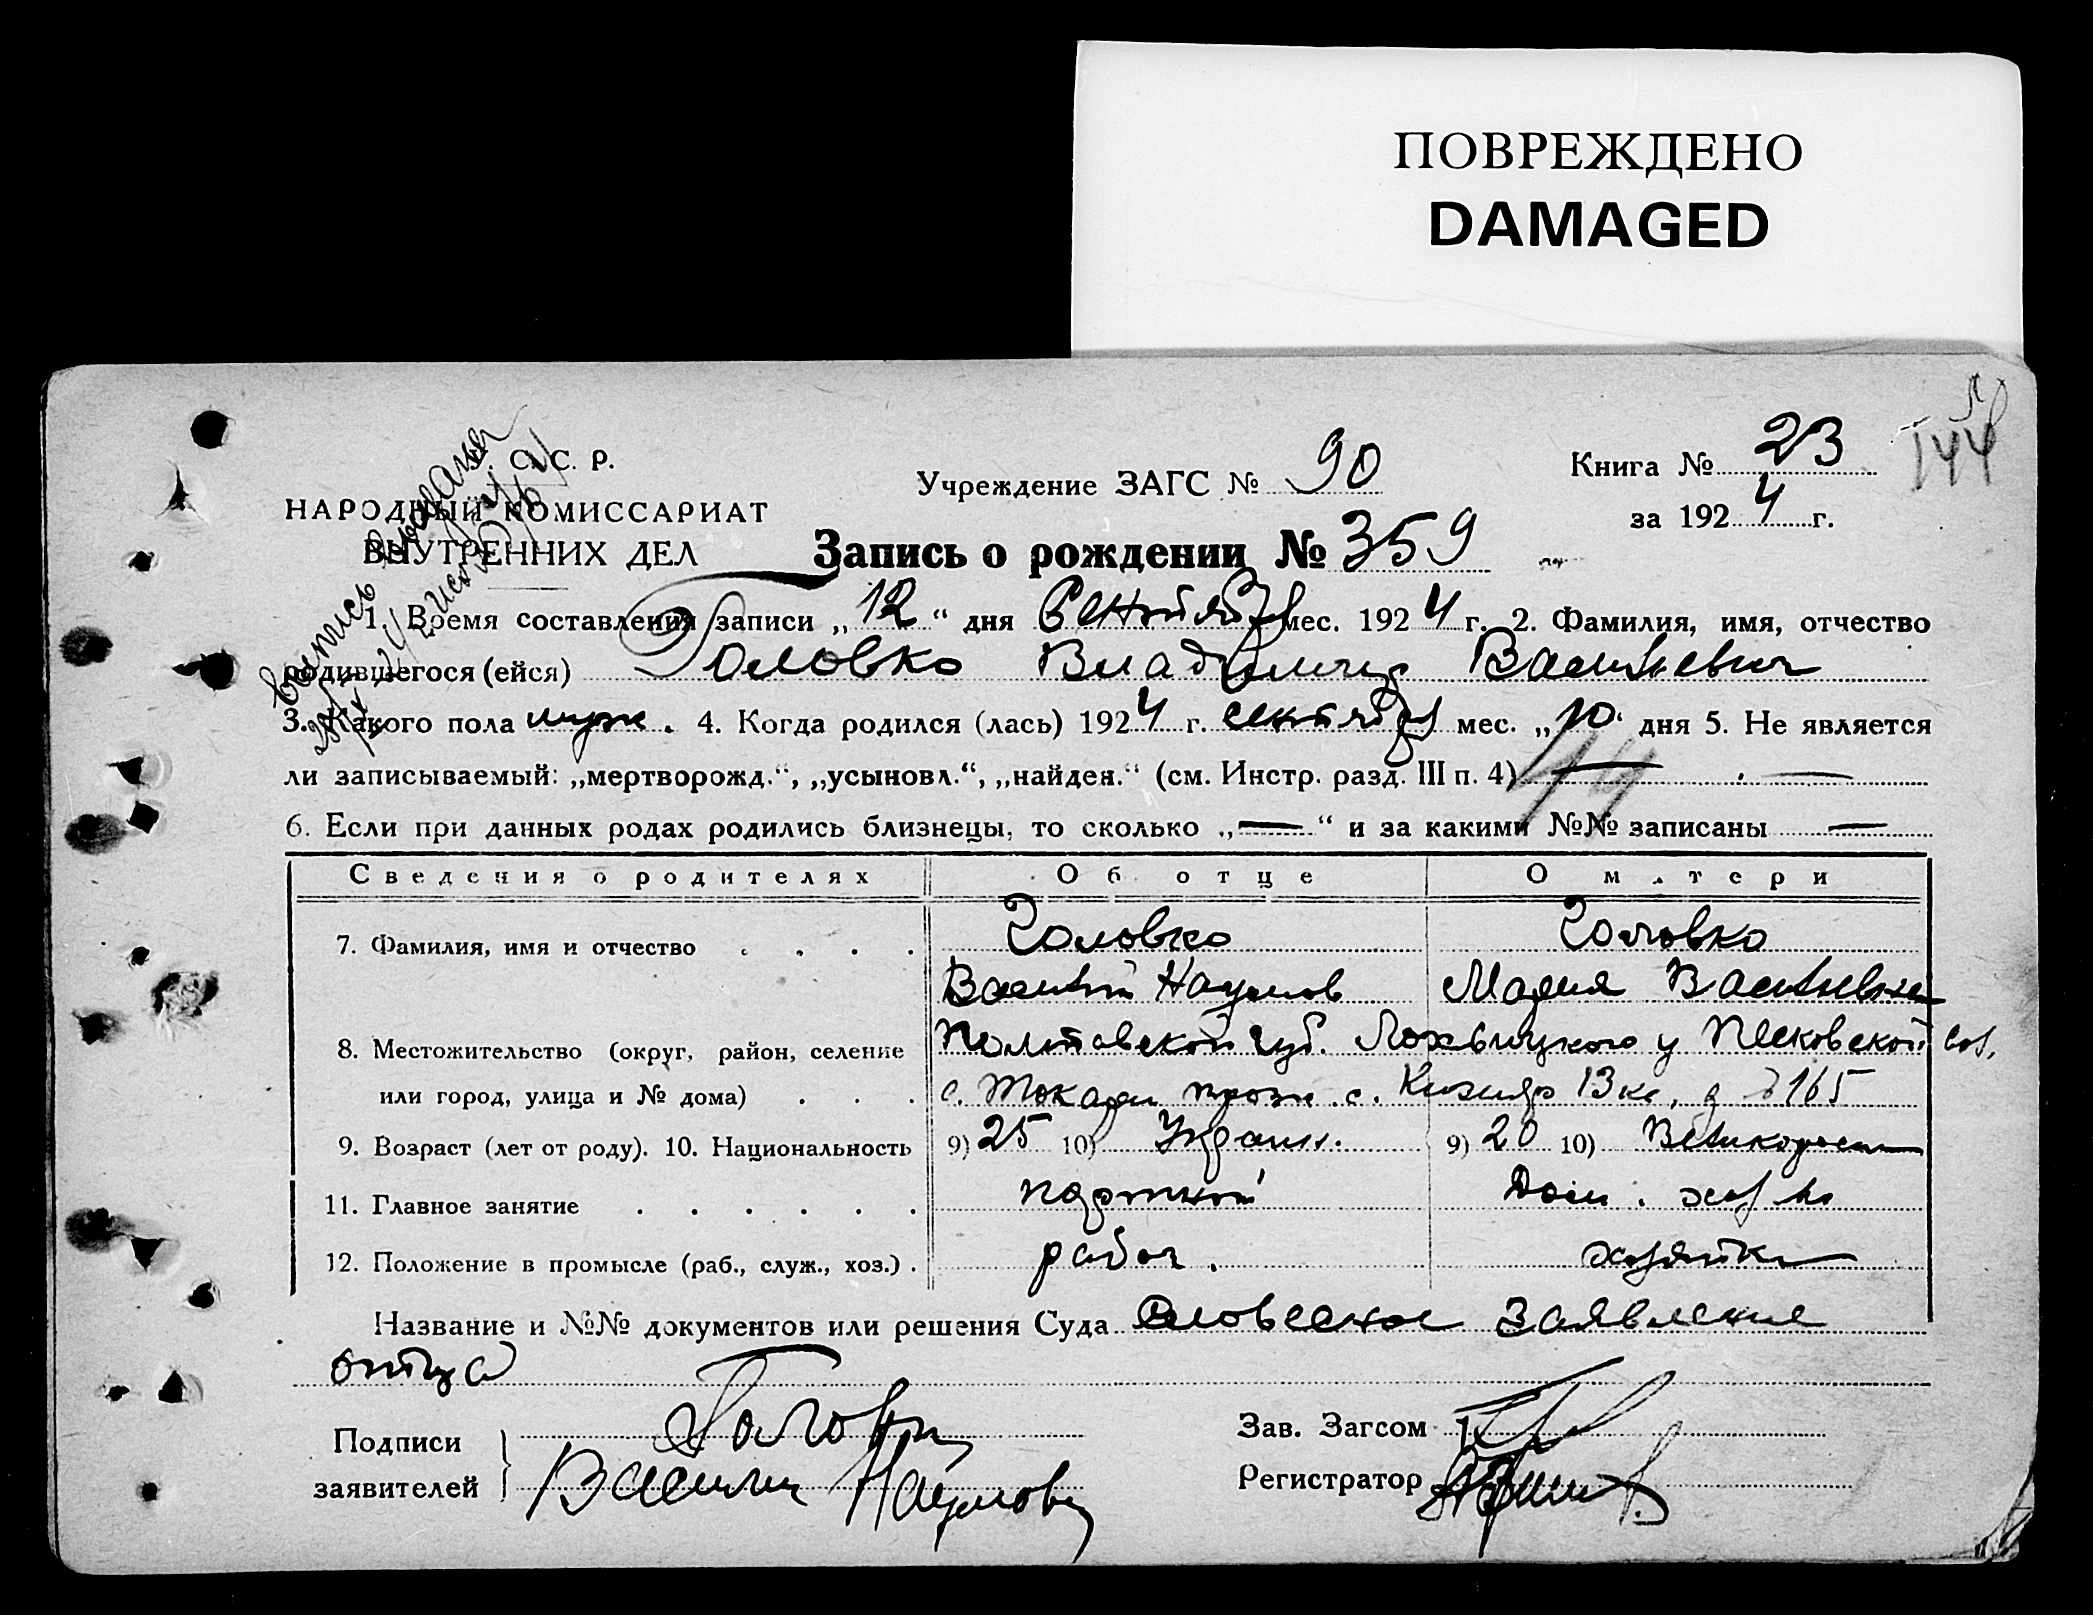 ПОВРЕЖДЕНО
DAMAGED
144
С. С. Р.
НАРОДНЫЙ КОМИССАРИАТ
ВНУТРЕННИХ ДЕЛ
Выпись выдана
Учреждение ЗАГС № 90
Книга № 23
за 1924 г.
Запись о рождении № 359
1. Время составления записи „12“ дня Сентября мес. 1924 г. 2. Фамилия, имя, отчество
родившегося (ейся) Головко Владимир Васильевич
3. Какого пола муж. 4. Когда родился (лась) 1924 г. сентября мес. „10“ дня 5. Не является
ли записываемый: „мертворожд.“, „усыновл.“, „найден.“ (см. Инстр. разд. III п. 4) — —
44
6. Если при данных родах родились близнецы, то сколько „—“ и за какими №№ записаны —
Сведения о родителях Об отце О матери
7. Фамилия, имя и отчество Головко Головко
Василий Наумов Мария Васильевна
8. Местожительство (округ, район, селение Полтавской губ. Лохвицкого у Песковской вол.
или город, улица и № дома) с. Токари прож. с. 13 кв. д 165
9. Возраст (лет от роду). 10. Национальность 9) 25 10) Украин. 9) 20 10) Великоросс
11. Главное занятие портной Дом. хоз-во
12. Положение в промысле (раб., служ., хоз.) рабоч. хозяйка
Название и №№ документов или решения Суда Словесное заявление
отца
Подписи заявителей Головко
Василий Наумов
Зав. Загсом
Регистратор